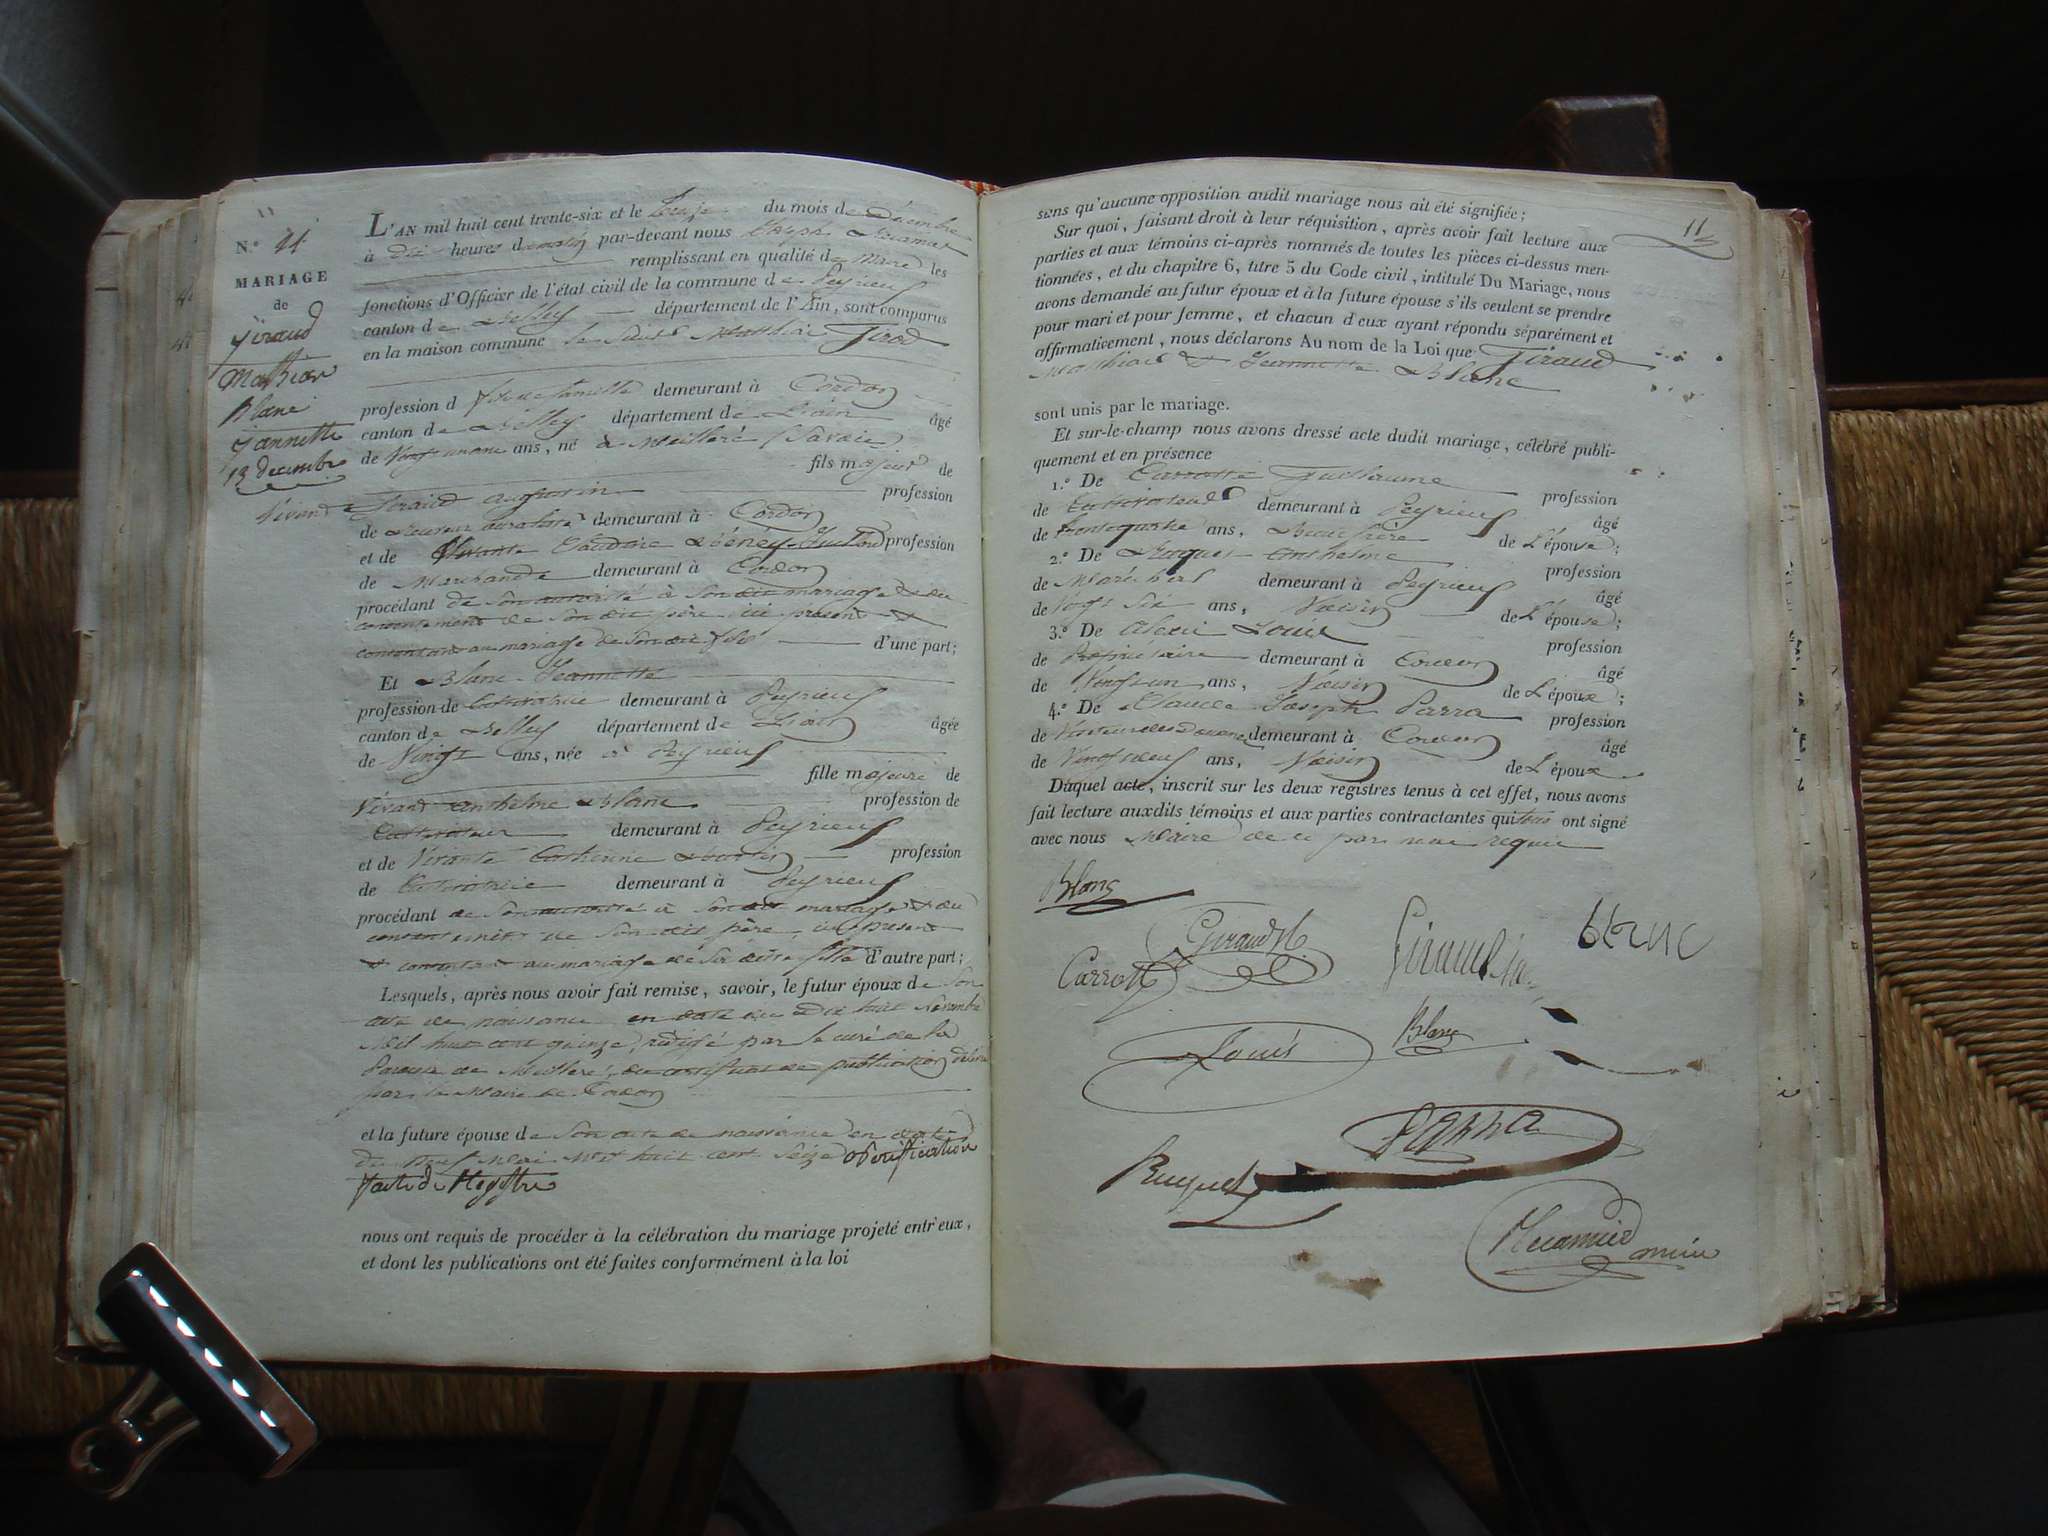 N.° 11
MARIAGE
de
Giraud
Mathieu
Blanc
Jannette
13 decembre
L'AN mil huit cent trente-six et le treize du mois de décembre
à dix heures du matin par-devant nous
remplissant en qualité de Maire les
fonctions d'Officier de l'état civil de la commune de Peyrieu
canton de Belley département de l'Ain, sont comparus
en la maison commune le Matthieu Firod
profession d demeurant à Cordon
canton de Belley département de L'ain âgé
de Vingt un ans, né à Meilleré (Savoie)
fils majeur de
Vivant Giraud augustin profession
de demeurant à Cordon
et de Vivante Claudine profession
de Marchande demeurant à Cordon
procédant de son autorité à son dit mariage & du
consentement de son dit père ici présent &
consentant au mariage de son dit fils d'une part;
Et Blanc Jeannette
profession de Cultivatrice demeurant à Peyrieu
canton de Belley département de L'ain âgée
de Vingt ans, née à Peyrieu
fille majeure de
Vivant anthelme Blanc profession de
Cultivateur demeurant à Peyrieu
et de Vivante Catherine profession
de Cultivatrice demeurant à Peyrieu
procédant de son autorité à son dit mariage & du
consentement de son dit père, ici présent
& consentant au mariage de sa dite fille d'autre part;
Lesquels, après nous avoir fait remise, savoir, le futur époux de son
acte de naissance en date du dix huit Novembre
Mil huit cent quinze, rédigé par le curé de la
Paroisse de Meilleré, du certificat de publication délivré
par le Maire de Cordon
et la future épouse de son acte de naissance en date
du neuf Mai Mil huit cent Seize vérification
faite du Registre
nous ont requis de procéder à la célébration du mariage projeté entr'eux,
et dont les publications ont été faites conformément à la loi
11
sens qu'aucune opposition audit mariage nous ait été signifiée;
Sur quoi, faisant droit à leur réquisition, après avoir fait lecture aux
parties et aux témoins ci-après nommés de toutes les pièces ci-dessus men-
tionnées, et du chapitre 6, titre 5 du Code civil, intitulé Du Mariage, nous
avons demandé au futur époux et à la future épouse s'ils veulent se prendre
pour mari et pour femme, et chacun d'eux ayant répondu séparément et
affirmativement, nous déclarons Au nom de la Loi que Giraud
Matthieu & Jeannette Blanc
sont unis par le mariage.
Et sur-le-champ nous avons dressé acte dudit mariage, célébré publi-
quement et en présence
1.° De Carrotte Guillaume profession
de Cultivateur demeurant à Peyrieu âgé
de trente quatre ans, Beau frère de L'épouse;
2.° De Ruquet Anthelme profession
de Maréchal demeurant à Peyrieu âgé
de Vingt Six ans, Voisin de L'épouse;
3.° De Alexis Louis profession
de Propriétaire demeurant à Cordon âgé
de Vingt un ans, Voisin de L'époux;
4.° De Claude Joseph Parra profession
de Visiteur des Douanes demeurant à Cordon âgé
de Vingt neuf ans, Voisin de L'époux
Duquel acte, inscrit sur les deux registres tenus à cet effet, nous avons
fait lecture auxdits témoins et aux parties contractantes qui tous ont signé
avec nous Maire de ce par nous requis
Blanc
Giraud M
Giraud
blanc
Carrott
Louis
Blanc
Parra
Ruquet
maire